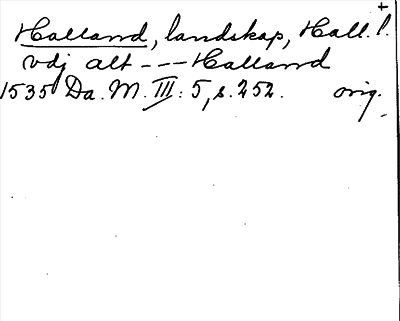 Halland, landskap, Hall. l.
vdj alt --- Halland
1535 Da. M. III: 5, s. 252. orig.